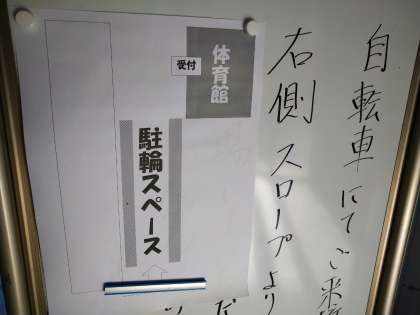 自転車にてご来
右側スロープより
体育館
受付
駐輪スペース